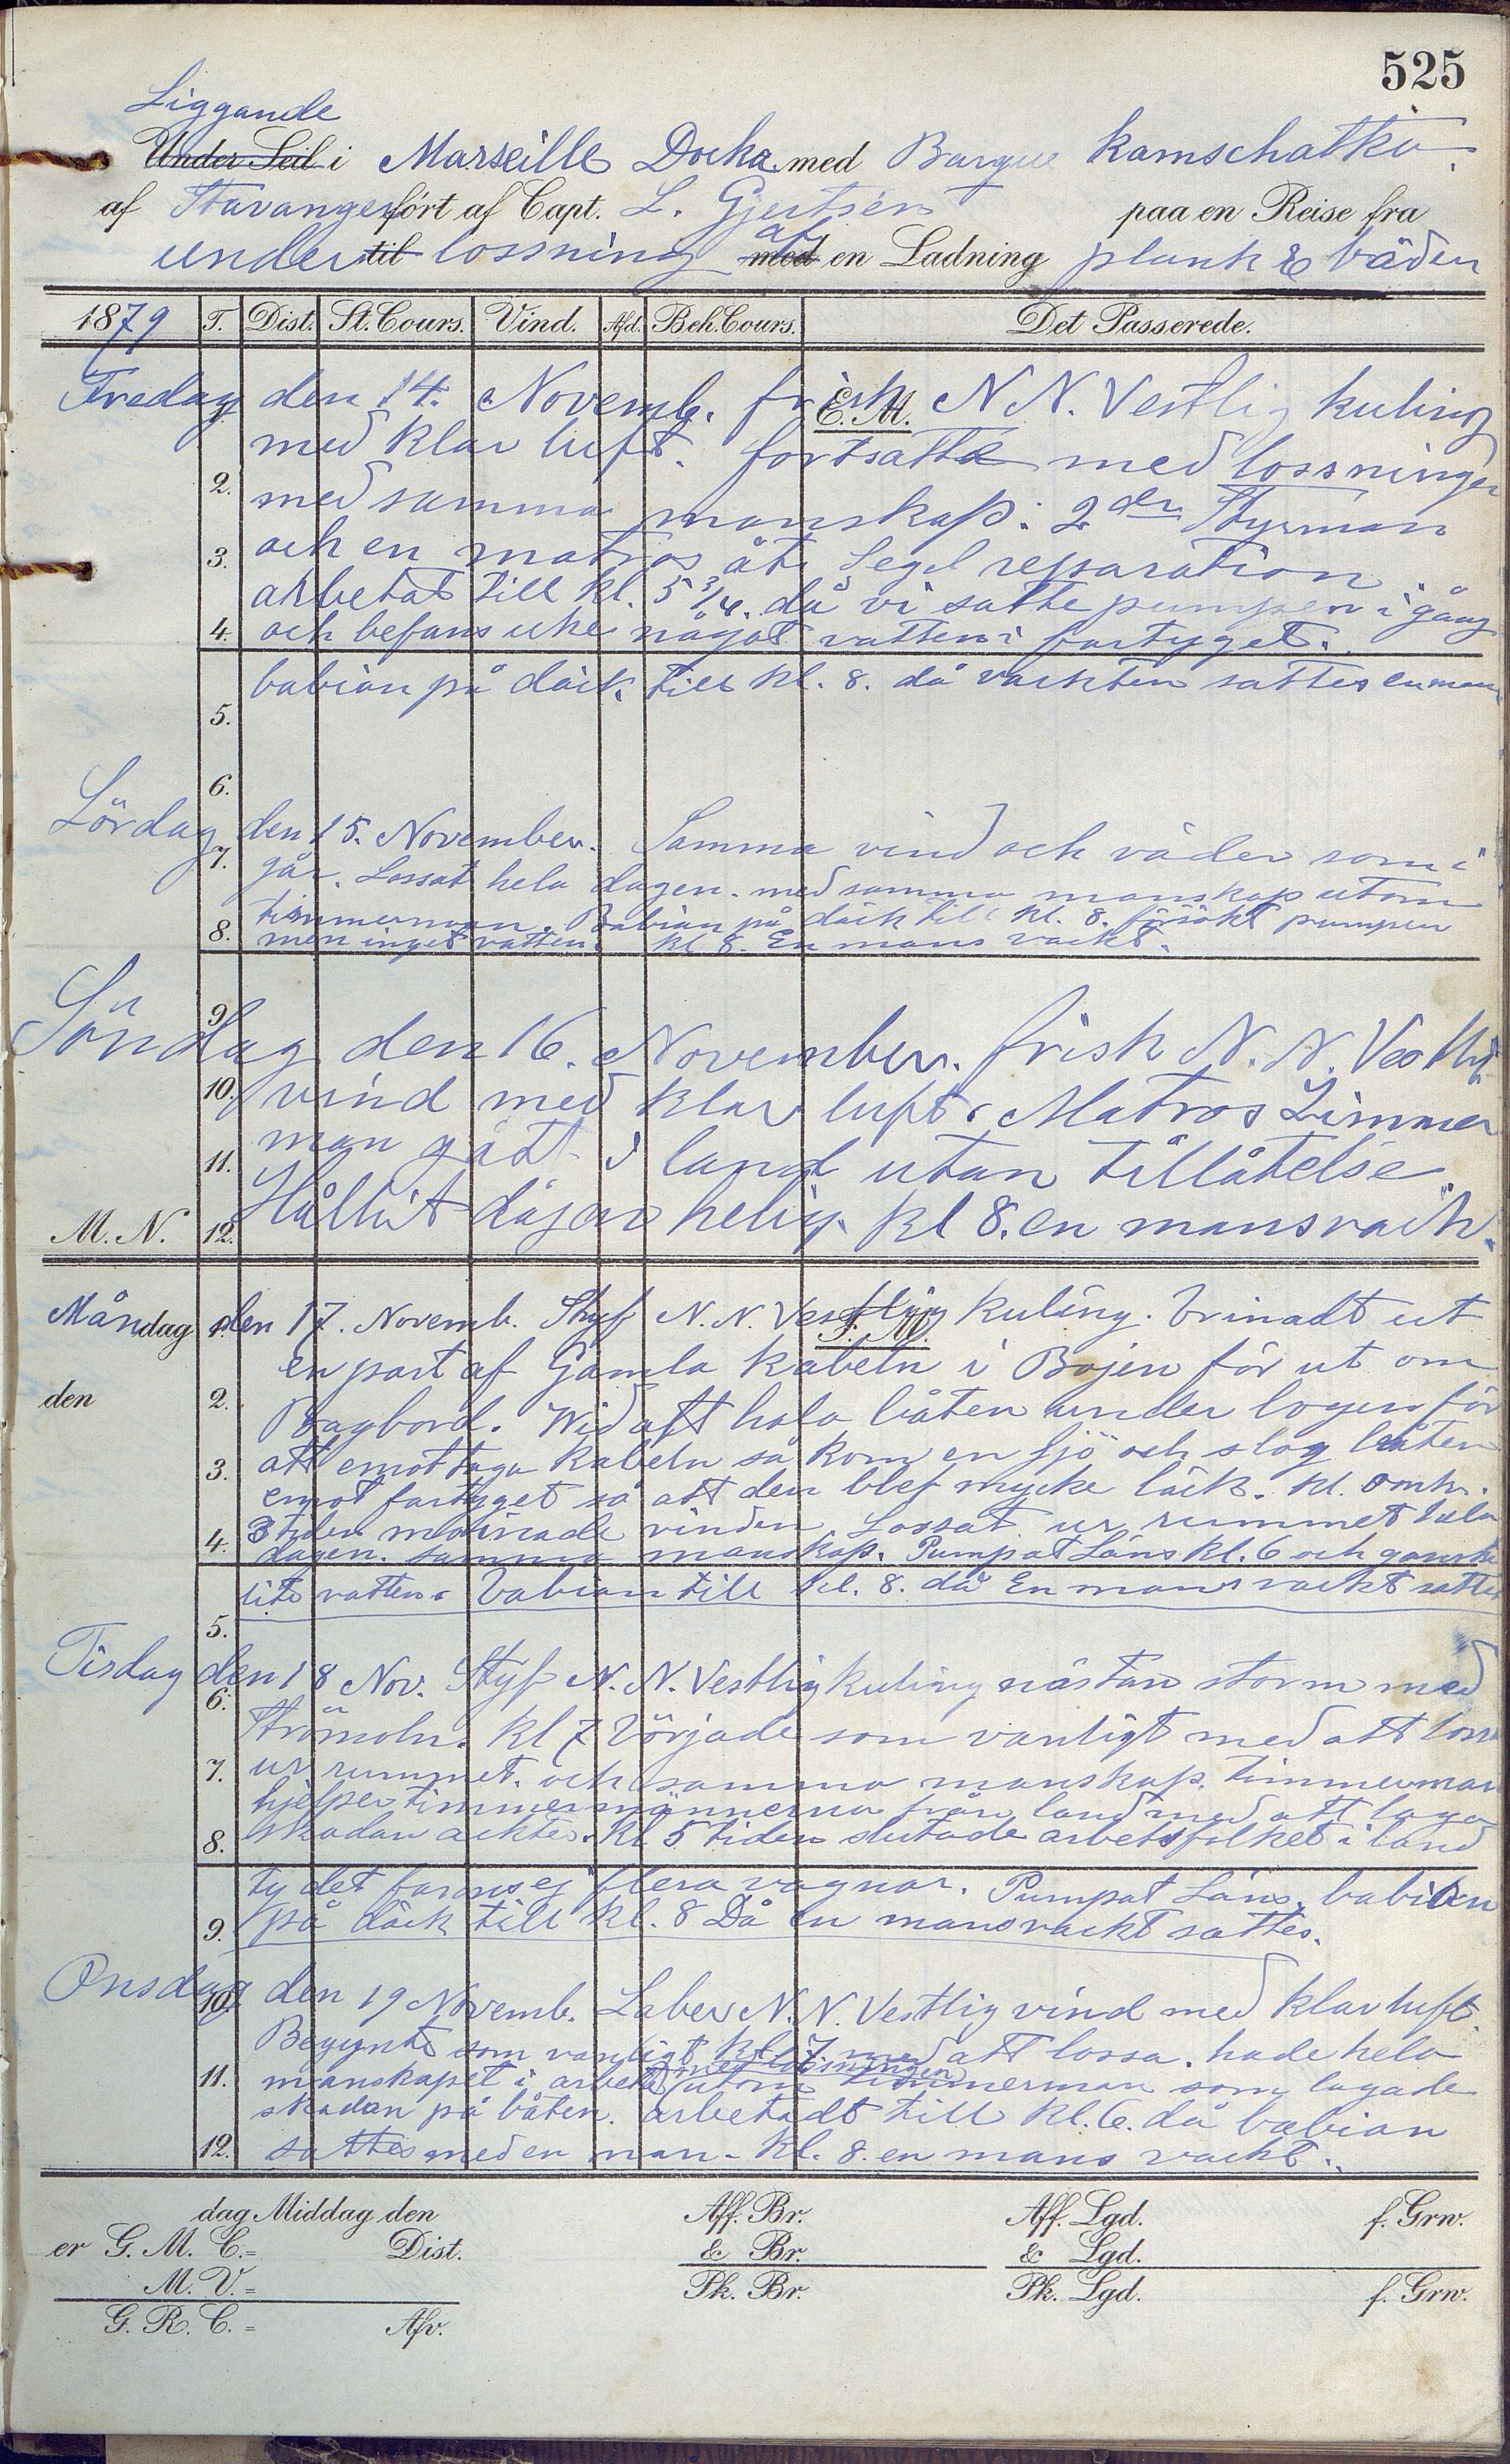 525
Liggande
Under Seil i Marseille Docka med Barque Kamschatka
af Stavanger fört af Capt. L. Gjertsen paa en Reise fra
under til lossning af med en Ladning plank & bäden
1879 T. Dist. St. Cours. Vind. Afd. Beh. Cours. Det Passerede.
E. M.
Fredag den 14. Novemb. frisk N N. Vestlig kuling
med klar luft. fortsatte med lossningen
2. med samma manskap. 2den Styrman
3. och en matros åt Segel reparation.
arbetat till kl. 5 3/4. då vi satte pumpen i gång
4. och befans icke något vatten i fartyget.
babian på däck till kl. 8. då vackten sattes en man
5.
6.
Lördag den 15. November. Samma vind och väder som i
7. går. Lossat hela dagen. med samma manskap utom
timmerman. Babian på däck till kl. 8. försökt pumpen
8. men inget vatten. kl 8. En mans vackt.
9.
Söndag den 16. November. frisk N. N. Vestlig
10. vind med klar luft. Matros Zimmer
11. man gått i land utan tillåtelse.
M. N. 12. Hållit dagen helig. kl 8. en mans vackt.
F. M.
Måndag 1. den 17. Novemb. Styf N. N. Vestlig kuling.
en part af Gamla kabeln i Bojen för ut om
den 2. Bagbord. Wid att hala båten under bogen för
3. att emottaga kabeln så kom en sjö och slog båten
emot fartyget så att den blef mycke läck. kl. omkr.
4. 3 tiden minade vinden Lossat ur rummet hela
dagen. samma manskap. Pumpat Läns kl. 6 och ganske
lite vatten. babian till kl. 8. då En mans vackt sattes
5.
Tisdag den 18 Nov. Styf N. N. Vestlig kuling nästan storm med
6.
Strömoln. kl 7 började som vanligt med att lossa
7. ur rummet. och samma manskap. timmerman
hjelper timmermännerna från land med att laga
8. skadan ackter. kl 5 tiden slutade arbetsfolket i land
ty det fanns ej flera vagnar. Pumpat Läns. babian
9. på däck till kl. 8 Då en mans vackt sattes.
Onsdag 10. den 19 Novemb. Laber N. N. Vestlig vind med klar luft.
Begynte som vanligt kl. 7 med att lossa. hade hela
11. manskapet i arbete med lossningen utom timmerman som lagade
skadan på båten. arbetadt till kl. 6. då babian
12. sattes med en man. kl. 8. en mans vackt.
dag Middag den Aff. Br. Aff. Lgd. f. Grw.
er G. M. C. = Dist. & Br. & Lgd.
M. V. = Pk. Br. Pk. Lgd. f. Grw.
G. R. C. = Afv.